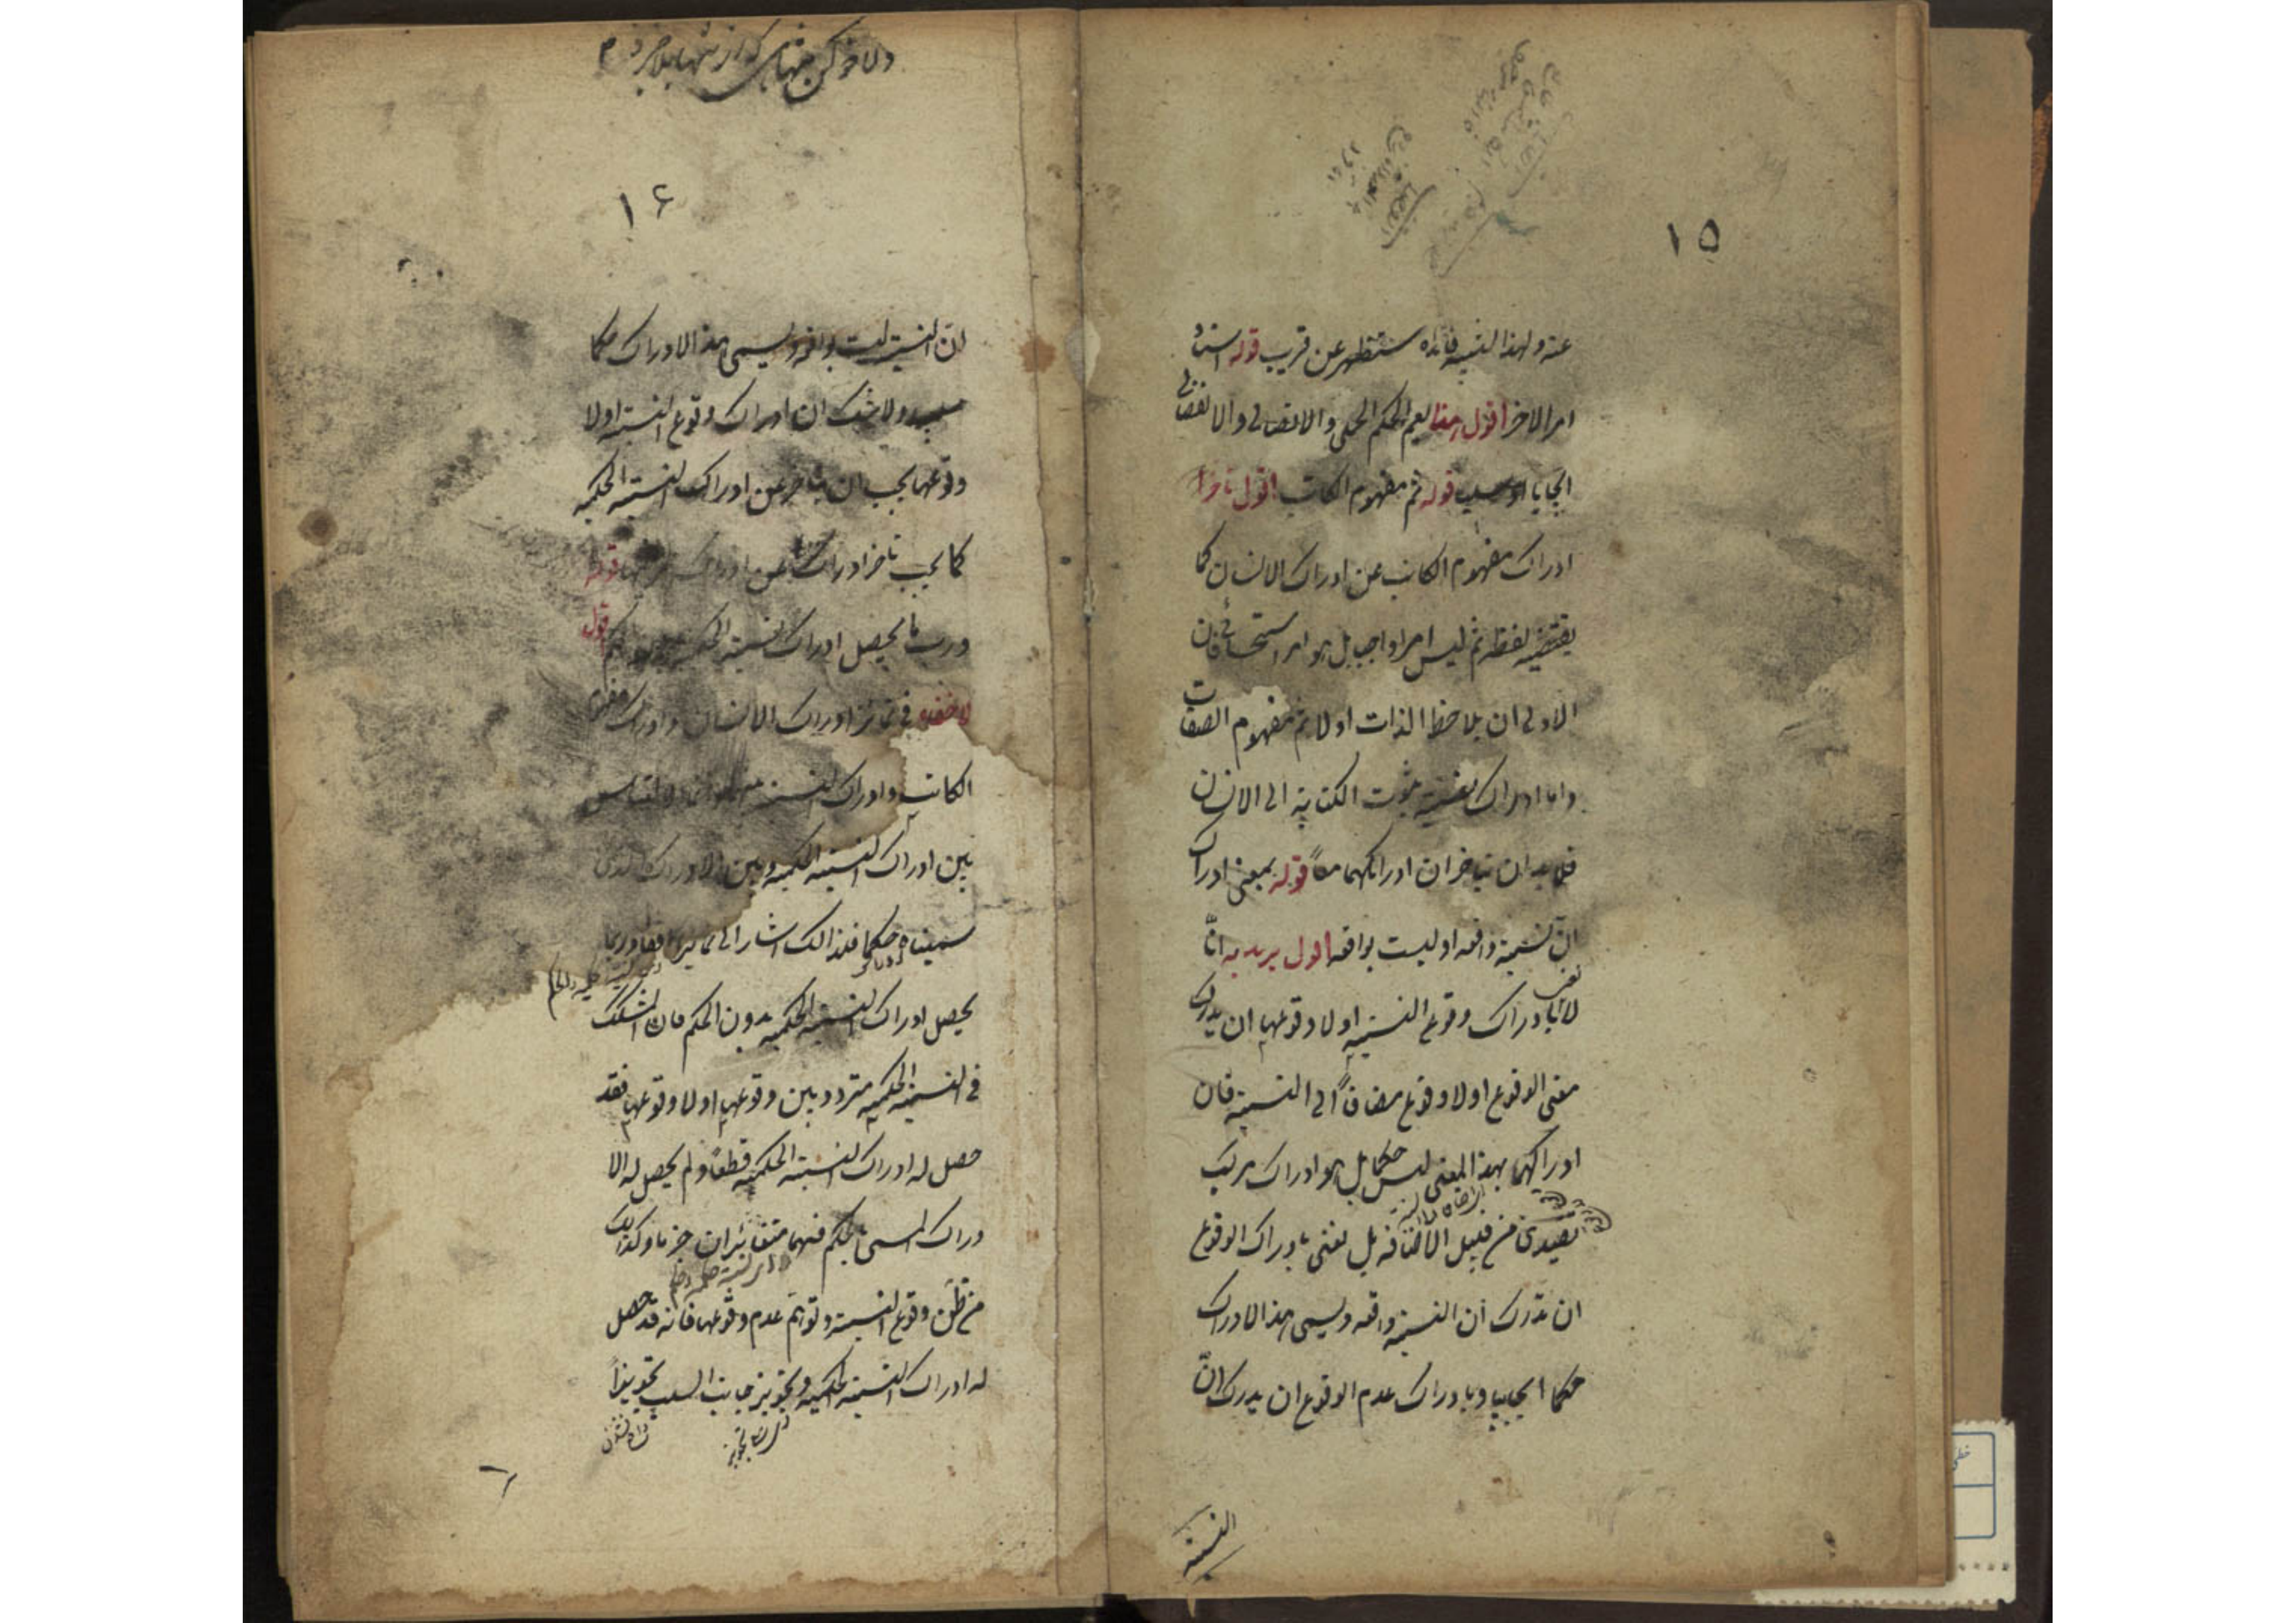 ١٥
عنه ولهذا التنبيه فائدة ستظهر عن قريب قوله استناد
امر الاخر اقول هذا يعم الحكم الحملي والاتصالي والانفصالي
ايجابا او سلبا قوله ثم مفهوم الكاتب اقول تاخر
ادراك مفهوم الكاتب عن ادراك الانسان كما
يقتضيه لفظه ثم ليس امرا واجبا بل هو امر استحساني فان
الاولى ان يلاحظ الذات اولا ثم مفهوم الصفات
واما ادراك نسبة ثبوت الكتابة الى الانسان
فلا بد ان يتاخر عن ادراكهما معاً قوله بمعنى ادراك
انّ النسبة واقعه او ليست بواقعه اقول يريد به انّا
لا نعنى بادراك وقوع النسبة او لا وقوعها ان يدرك
معنى الوقوع او لا وقوع مضافاً الى النسبة فان
ادراكهما بهذا المعنى ليس حكما بل هو ادراك مركب
تقييدى من قبيل الاضافه بل نعنى بادراك الوقوع
ان ندرك ان النسبة واقعه ويسمى هذا الادراك
حكما ايجابيا وبادراك عدم الوقوع ان يدرك انّ
النسبة
١٦
انّ النسبة ليست بواقعه ويسمى هذا الادراك حكما
سلبيا ولا شك ان ادراك وقوع النسبة او لا
وقوعها يجب ان يتاخر عن ادراك النسبة الحكميه
كما يجب تاخر ادراكها عن ادراك طرفيها قوله
وربما يحصل ادراك النسبة الحكمية بدون الحكم اقول
لا خفاء في تمايز ادراك الانسان وادراك مفهوم
الكاتب وادراك النسبة بينهما وانما الالتباس
بين ادراك النسبة الحكميه وبين الادراك الذى
سميناه حكما فلذالك اشار الى تمايزهما فقد وربما
يحصل ادراك النسبة الحكميه بدون الحكم فان المشكك
فى النسبة الحكميه متردد بين وقوعها او لا وقوعها فقد
حصل له ادراك النسبة الحكميه قطعاً ولم يحصل له الا
دراك المسمى بالحكم فهما متغايران جزما وكذلك
من ظن وقوع النسبة وتوهم عدم وقوعها فانه قد حصل
له ادراك النسبة الحكميه وتجويز جانب السلب تجويزاً